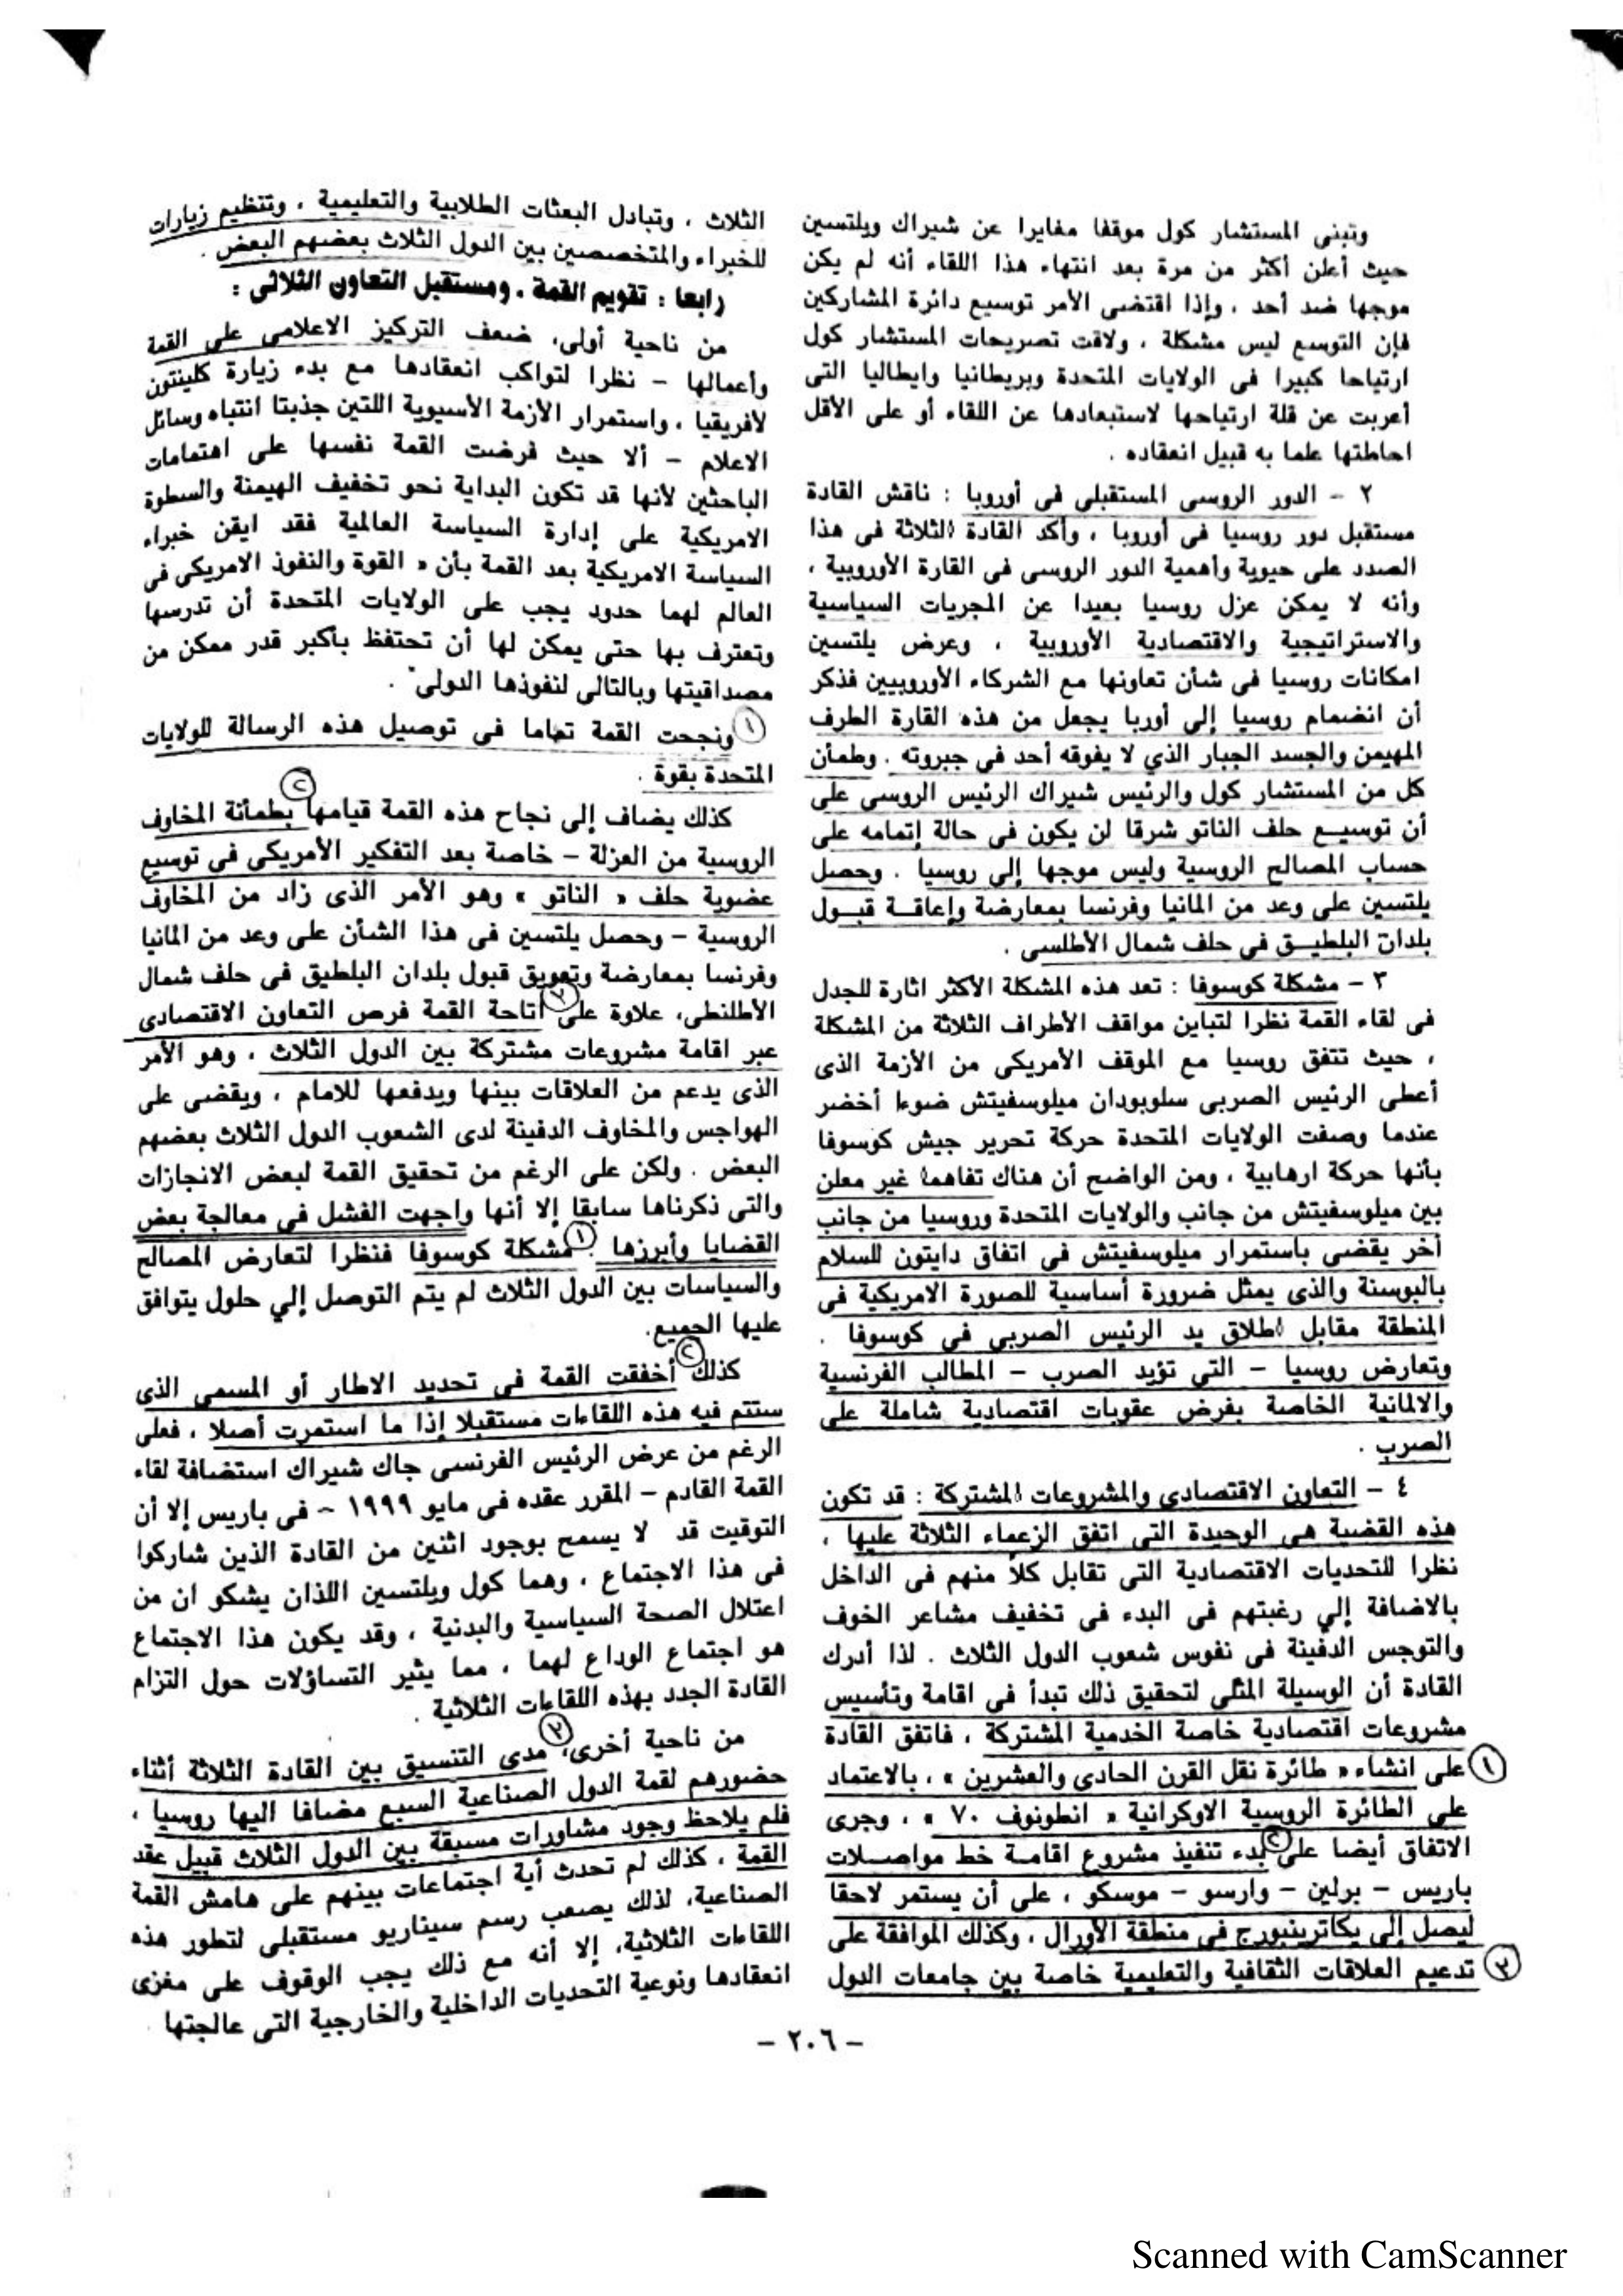 وتبنى المستشار كول موقفا مغايرا عن شيراك ويلتسين
حيث أعلن أكثر من مرة بعد انتهاء هذا اللقاء أنه لم يكن
موجها ضد أحد ، وإذا اقتضى الأمر توسيع دائرة المشاركين
فإن التوسع ليس مشكلة ، ولاقت تصريحات المستشار كول
ارتياحا كبيرا فى الولايات المتحدة وبريطانيا وايطاليا التى
أعربت عن قلة ارتياحها لاستبعادها عن اللقاء أو على الأقل
احاطتها علما به قبيل انعقاده .
٢ - الدور الروسى المستقبلى فى أوروبا : ناقش القادة
مستقبل دور روسيا فى أوروبا ، وأكد القادة الثلاثة فى هذا
الصدد على حيوية وأهمية الدور الروسى فى القارة الأوروبية ،
وأنه لا يمكن عزل روسيا بعيدا عن المجريات السياسية
والاستراتيجية والاقتصادية الأوروبية ، وعرض يلتسين
امكانات روسيا فى شأن تعاونها مع الشركاء الأوروبيين فذكر
أن انضمام روسيا إلى أوربا يجعل من هذه القارة الطرف
المهيمن والجسد الجبار الذي لا يفوقه أحد فى جبروته . وطمأن
كل من المستشار كول والرئيس شيراك الرئيس الروسى على
أن توسيع حلف الناتو شرقا لن يكون فى حالة إتمامه على
حساب المصالح الروسية وليس موجها إلى روسيا . وحصل
يلتسين على وعد من المانيا وفرنسا بمعارضة وإعاقة قبول
بلدان البلطيق فى حلف شمال الأطلسى .
٣ - مشكلة كوسوفا : تعد هذه المشكلة الأكثر اثارة للجدل
فى لقاء القمة نظرا لتباين مواقف الأطراف الثلاثة من المشكلة
، حيث تتفق روسيا مع الموقف الأمريكى من الأزمة الذى
أعطى الرئيس الصربى سلوبودان ميلوسفيتش ضوءا أخضر
عندما وصفت الولايات المتحدة حركة تحرير جيش كوسوفا
بأنها حركة ارهابية ، ومن الواضح أن هناك تفاهما غير معلن
بين ميلوسفيتش من جانب والولايات المتحدة وروسيا من جانب
آخر يقضى باستمرار ميلوسفيتش فى اتفاق دايتون للسلام
بالبوسنة والذى يمثل ضرورة أساسية للصورة الامريكية فى
المنطقة مقابل اطلاق يد الرئيس الصربى فى كوسوفا .
وتعارض روسيا - التي تؤيد الصرب - المطالب الفرنسية
والالمانية الخاصة بفرض عقوبات اقتصادية شاملة على
الصرب .
٤ - التعاون الاقتصادى والمشروعات المشتركة : قد تكون
هذه القضية هى الوحيدة التى اتفق الزعماء الثلاثة عليها ،
نظرا للتحديات الاقتصادية التى تقابل كلاً منهم فى الداخل
بالاضافة إلي رغبتهم فى البدء فى تخفيف مشاعر الخوف
والتوجس الدفينة فى نفوس شعوب الدول الثلاث . لذا أدرك
القادة أن الوسيلة المثلى لتحقيق ذلك تبدأ فى اقامة وتأسيس
مشروعات اقتصادية خاصة الخدمية المشتركة ، فاتفق القادة
١ على انشاء « طائرة نقل القرن الحادى والعشرين » ، بالاعتماد
على الطائرة الروسية الاوكرانية « انطونوف ٧٠ » ، وجرى
الاتفاق أيضا على ٢ بدء تنفيذ مشروع اقامة خط مواصلات
باريس - برلين - وارسو - موسكو ، على أن يستمر لاحقا
ليصل إلى يكاترينبورج فى منطقة الأورال ، وكذلك الموافقة على
٣ تدعيم العلاقات الثقافية والتعليمية خاصة بين جامعات الدول
الثلاث ، وتبادل البعثات الطلابية والتعليمية ، وتنظيم زيارات
للخبراء والمتخصصين بين الدول الثلاث بعضهم البعض .
رابعا : تقويم القمة . ومستقبل التعاون الثلاثى :
من ناحية أولى، ضعف التركيز الاعلامى على القمة
وأعمالها - نظرا لتواكب انعقادها مع بدء زيارة كلينتون
لأفريقيا ، واستمرار الأزمة الأسيوية اللتين جذبتا انتباه وسائل
الاعلام - ألا حيث فرضت القمة نفسها على اهتمامات
الباحثين لأنها قد تكون البداية نحو تخفيف الهيمنة والسطوة
الامريكية على إدارة السياسة العالمية فقد ايقن خبراء
السياسة الامريكية بعد القمة بأن « القوة والنفوذ الامريكى فى
العالم لهما حدود يجب على الولايات المتحدة أن تدرسها
وتعترف بها حتى يمكن لها أن تحتفظ بأكبر قدر ممكن من
مصداقيتها وبالتالى لنفوذها الدولى" .
١ ونجحت القمة تماما فى توصيل هذه الرسالة للولايات
المتحدة بقوة .
كذلك يضاف إلى نجاح هذه القمة قيامها ٢ بطمأنة المخاوف
الروسية من العزلة - خاصة بعد التفكير الأمريكى فى توسيع
عضوية حلف « الناتو » وهو الأمر الذى زاد من المخاوف
الروسية - وحصل يلتسين فى هذا الشأن على وعد من المانيا
وفرنسا بمعارضة وتعويق قبول بلدان البلطيق فى حلف شمال
الأطلنطى، علاوة على ٣ أتاحة القمة فرص التعاون الاقتصادى
عبر اقامة مشروعات مشتركة بين الدول الثلاث ، وهو الأمر
الذى يدعم من العلاقات بينها ويدفعها للامام ، ويقضى على
الهواجس والمخاوف الدفينة لدى الشعوب الدول الثلاث بعضهم
البعض . ولكن على الرغم من تحقيق القمة لبعض الانجازات
والتى ذكرناها سابقا إلا أنها واجهت الفشل فى معالجة بعض
القضايا وأبرزها : ١ مشكلة كوسوفا فنظرا لتعارض المصالح
والسياسات بين الدول الثلاث لم يتم التوصل إلي حلول يتوافق
عليها الجميع.
كذلك ٢ أخفقت القمة فى تحديد الاطار أو المسمى الذى
ستتم فيه هذه اللقاءات مستقبلا إذا ما استمرت أصلا ، فعلى
الرغم من عرض الرئيس الفرنسى جاك شيراك استضافة لقاء
القمة القادم - المقرر عقده فى مايو ١٩٩٩ - فى باريس إلا أن
التوقيت قد لا يسمح بوجود اثنين من القادة الذين شاركوا
فى هذا الاجتماع ، وهما كول ويلتسين اللذان يشكو ان من
اعتلال الصحة السياسية والبدنية ، وقد يكون هذا الاجتماع
هو اجتماع الوداع لهما ، مما يثير التساؤلات حول التزام
القادة الجدد بهذه اللقاءات الثلاثية .
من ناحية أخرى، ٣ مدى التنسيق بين القادة الثلاثة أثناء
حضورهم لقمة الدول الصناعية السبع مضافا اليها روسيا ،
فلم يلاحظ وجود مشاورات مسبقة بين الدول الثلاث قبيل عقد
القمة ، كذلك لم تحدث أية اجتماعات بينهم على هامش القمة
الصناعية، لذلك يصعب رسم سيناريو مستقبلى لتطور هذه
اللقاءات الثلاثية، إلا أنه مع ذلك يجب الوقوف على مغزى
انعقادها ونوعية التحديات الداخلية والخارجية التى عالجتها
- ٢٠٦ -
Scanned with CamScanner